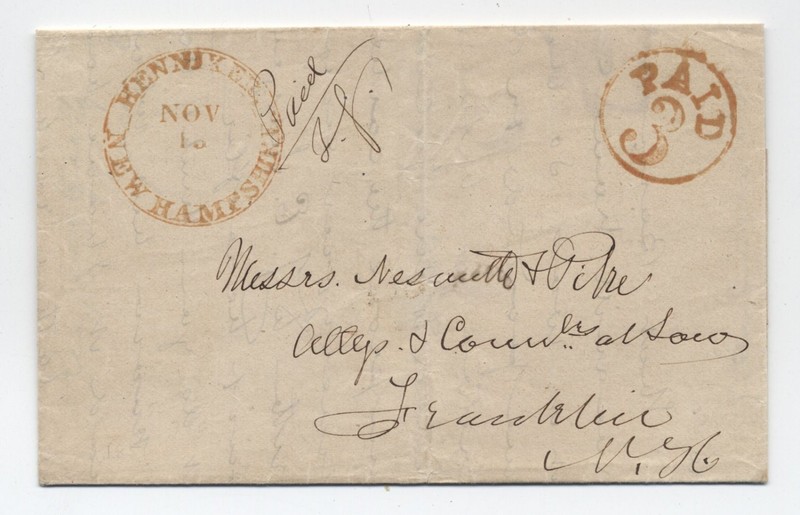 HENNIKER
NEW HAMPSHIRE
NOV
Paid
PAID
3
Messrs. Nesmith & Pike
Attys. & Couns'rs at Law
Franklin
N. H